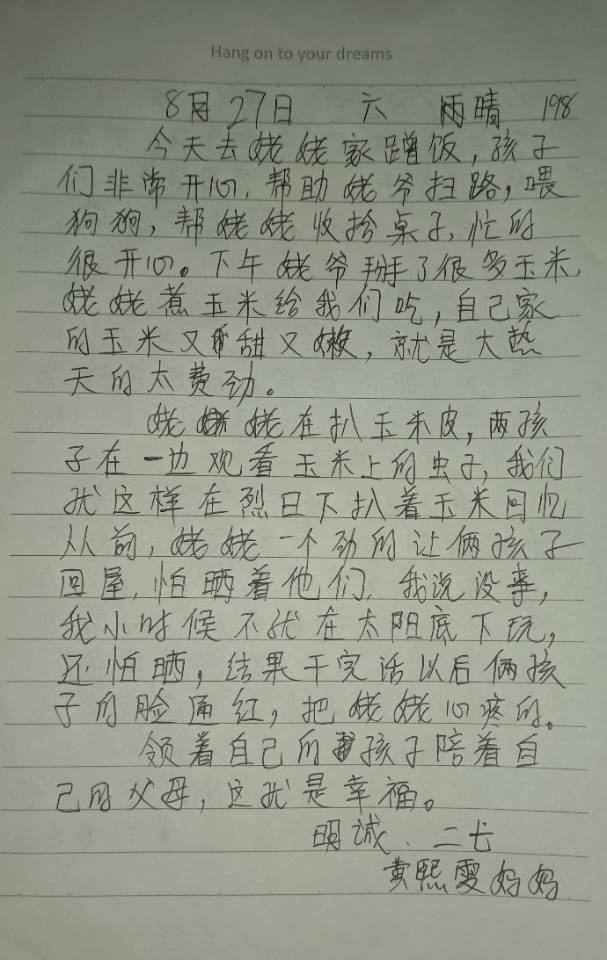 Hang on to your dreams
8月27日 六 雨晴 198
今天去姥姥家蹭饭，孩子
们非常开心，帮助姥爷扫路，喂
狗狗，帮姥姥收拾桌子，忙的
很开心。下午姥爷掰了很多玉米，
姥姥煮玉米给我们吃，自己家
的玉米又甜又嫩，就是大热
天的太费劲。
姥姥在扒玉米皮，两孩
子在一边观看玉米上的虫子，我们
就这样在烈日下扒着玉米回忆
从前，姥姥一个劲的让俩孩子
回屋，怕晒着他们，我说没事，
我小时候不就在太阳底下玩，
还怕晒，结果干完活以后俩孩
子的脸通红，把姥姥心疼的。
领着自己的孩子陪着自
己的父母，这就是幸福。
明诚．二七
黄熙雯妈妈